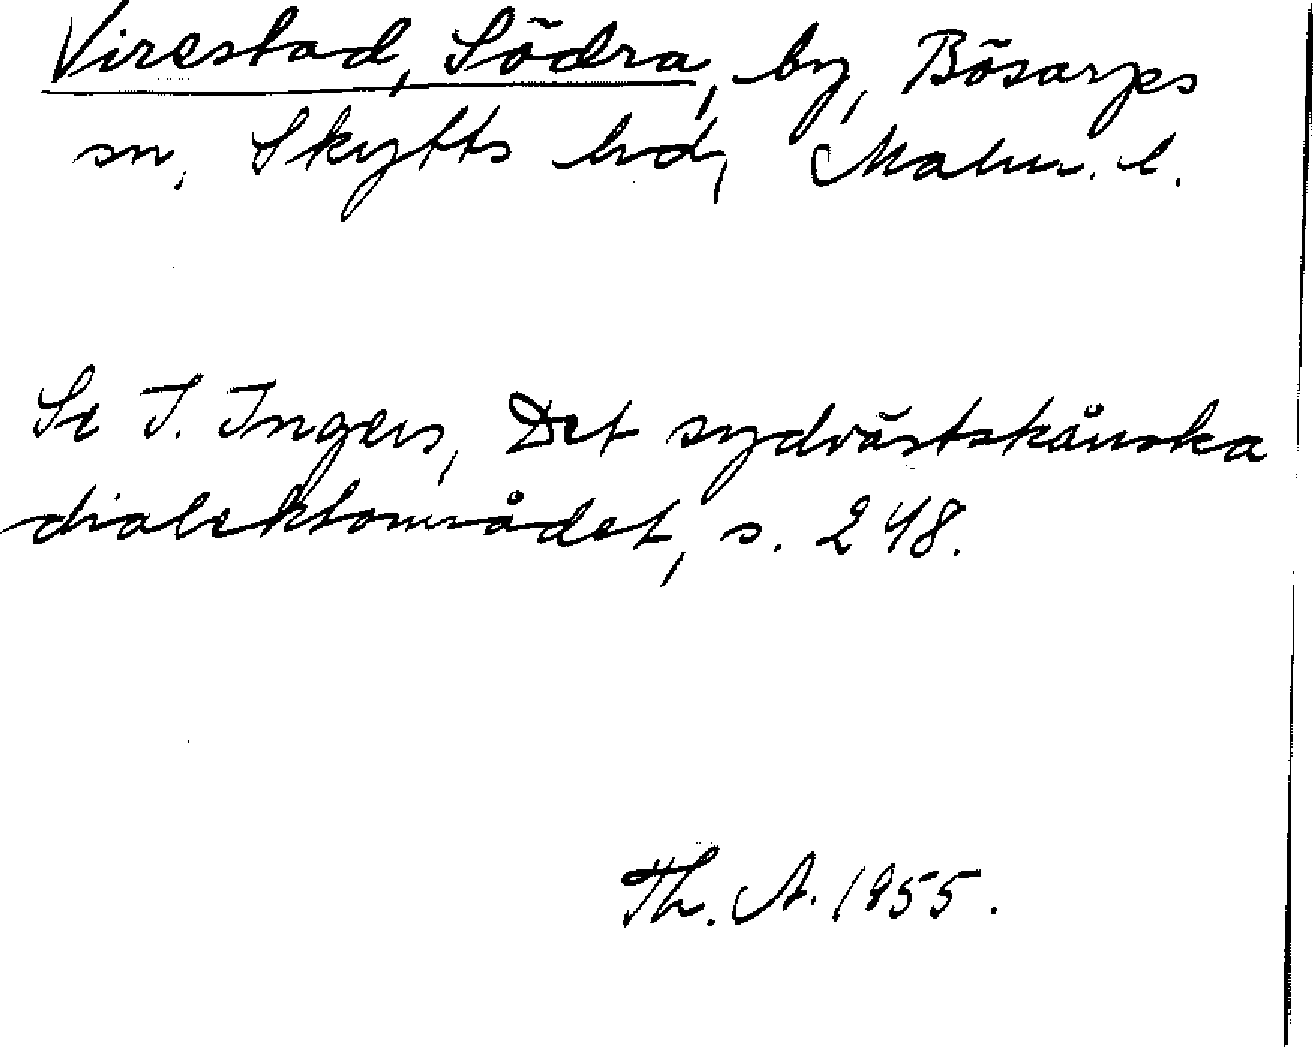 Virestad, Södra, by, Bösarps
sn, Skytts hd, Malm. l.
Se I. Ingers, Det sydvästskånska
dialektområdet, s. 248.
Th. A. 1955.